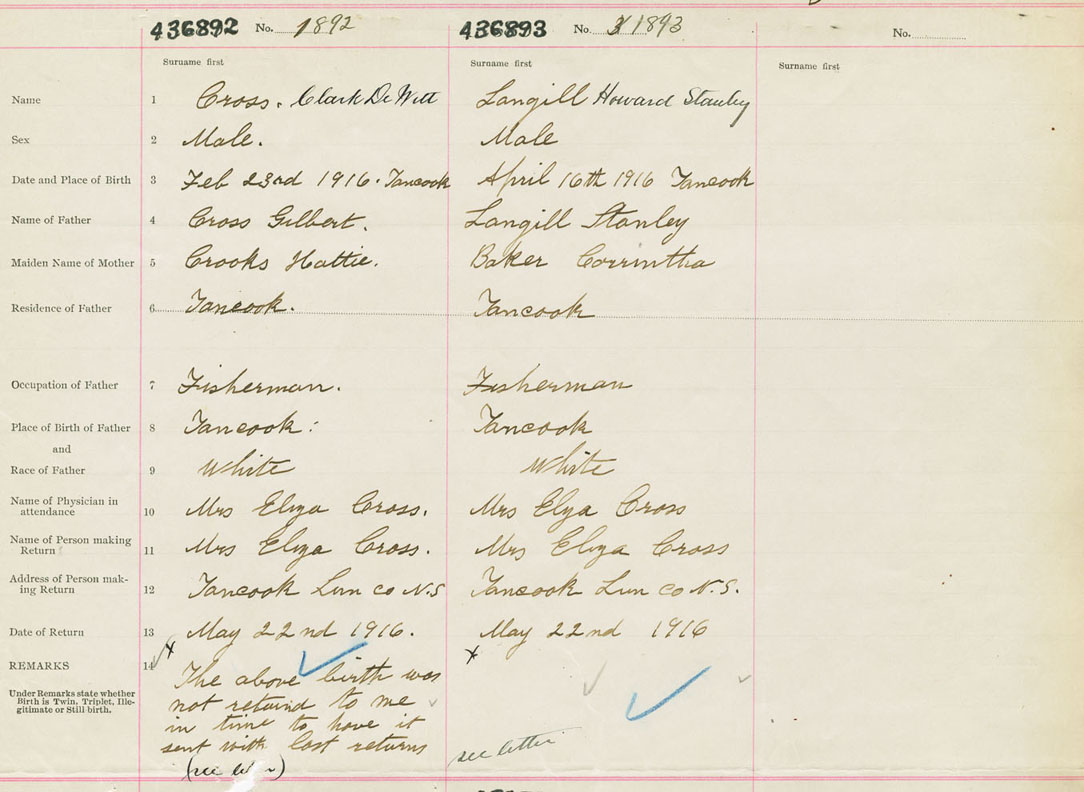 436892 No. 1892 436893 No. 1893 No.
Surname first Surname first Surname first
Name 1 Cross. Clark De Witt Langill Howard Stanley
Sex 2 Male. Male
Date and Place of Birth 3 Feb 23rd 1916. Tancook April 16th 1916 Tancook
Name of Father 4 Cross Gilbert. Langill Stanley
Maiden Name of Mother 5 Crooks Hattie. Baker Corrintha
Residence of Father 6 Tancook. Tancook
Occupation of Father 7 Fisherman. Fisherman
Place of Birth of Father 8 Tancook. Tancook
and
Race of Father 9 White White
Name of Physician in
attendance 10 Mrs Eliza Cross. Mrs Elza Cross
Name of Person making
Return 11 Mrs Eliza Cross. Mrs Eliza Cross
Address of Person mak-
ing Return 12 Tancook Lun co N.S Tancook Lun co N.S.
Date of Return 13 May 22nd 1916. May 22nd 1916
REMARKS 14 The above birth was
Under Remarks state whether
Birth is Twin, Triplet, Ille-
gitimate or Still birth.
not returnd to me
in time to have it
sent with last returns
(see
see letter